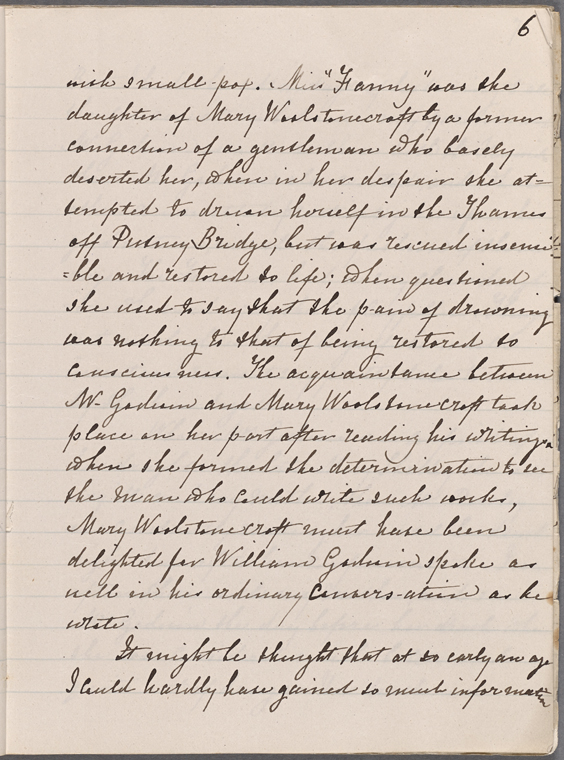 6
with small-pox. Miss "Fanny" was the
daughter of Mary Woolstonecroft by a former
connection of a gentleman who basely
deserted her, when in her despair she at=
tempted to drown herself in the Thames
off Putney Bridge, but was rescued insensi=
=ble and restored to life; when questioned
she used to say that the pain of drowning
was nothing to that of being restored to
consciousness. The acquaintance between
Mr Godwin and Mary Woolstonecroft took
place on her part after reading his writings
when she formed the determination to see
the man who could write such works,
Mary Woolstonecroft must have been
delighted for William Godwin spoke as
well in his ordinary conversation as he
wrote.
It might be thought that at so early an age
I could hardly have gained so much information